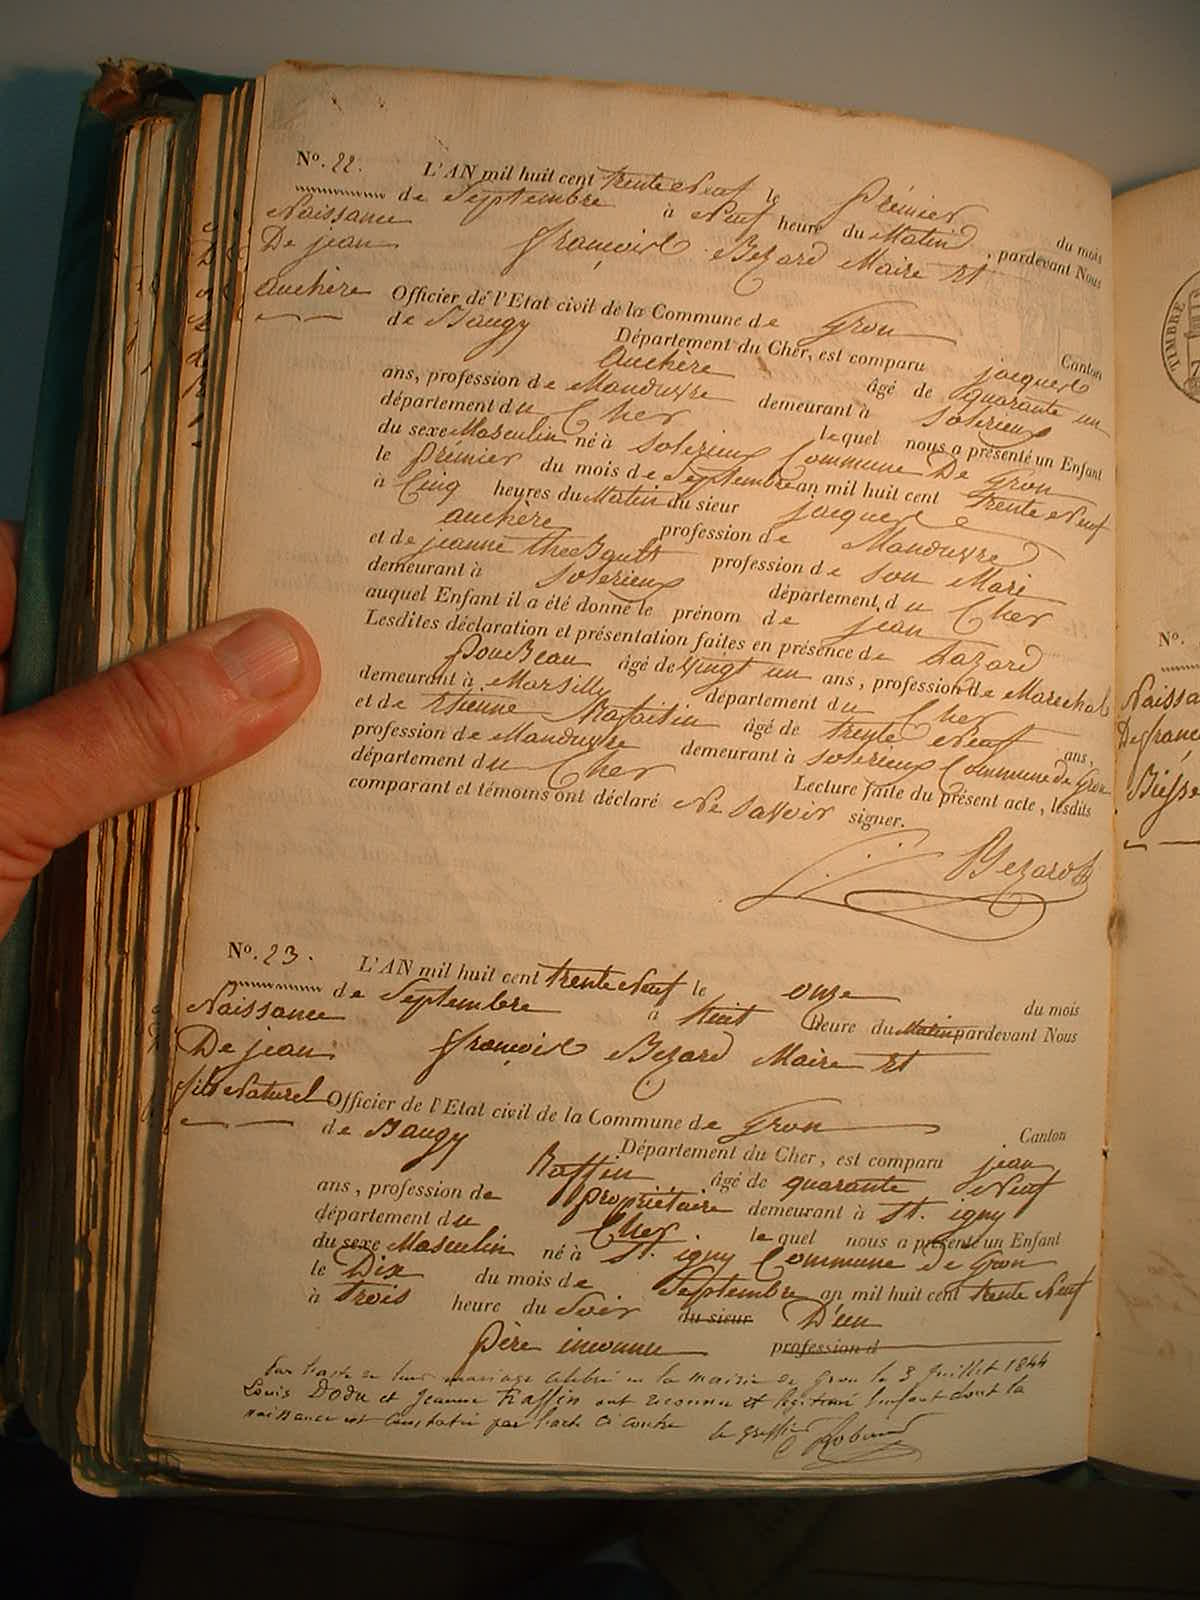 N°. 22. L'AN mil huit cent trente Neuf le Prémier du mois
de Septembre à Neuf heure du Matin, pardevant Nous
Naissance
De jean
auchère
françoise Bezard Maire Et
Officier de l'Etat civil de la Commune de Gron Canton
de Baugy Département du Cher, est comparu jacques
auchère âgé de quarante un
ans, profession de Manduvre demeurant à Soterieux
département du Cher lequel nous a présenté un Enfant
du sexe Masculin né à Soterieux Commune De Gron
le Prémier du mois de Septembre an mil huit cent trente Neuf
à Cinq heures du Matin du sieur jacques
auchère profession de Manduvre
et de jeanne theeBault profession de Son Mari
demeurant à Soterieux département du Cher
auquel Enfant il a été donné le prénom de jean
Lesdites déclaration et présentation faites en présence de Lazard
PoueBeau âgé de vingt un ans, profession de Marechal
demeurant à Marsilly département du Cher
et de Etienne Rafaitin âgé de trente Neuf ans,
profession de Manduvre demeurant à Soterieux Commune de Gron
département du Cher Lecture faite du présent acte, lesdits
comparant et témoins ont déclaré Ne Savoir signer.
Bezard
N°. 23. L'AN mil huit cent trente Neuf le onze du mois
de Septembre à Huit heure du Matin pardevant Nous
Naissance
De jean
fils Naturel
françoise Bezard Maire Et
Officier de l'Etat civil de la Commune de Gron Canton
de Baugy Département du Cher, est comparu jean
Raffin âgé de quarante Neuf
ans, profession de propriétaire demeurant à St. igny
département du Cher lequel nous a présenté un Enfant
du sexe Masculin né à St. igny Commune de Gron
le Dix du mois de Septembre an mil huit cent trente Neuf
à trois heure du Soir du sieur D'un
Père inconnu profession d
Par l'acte de leur mariage célébré en la mairie de Gron le 3 Juillet 1844
Louis Dodu et Jeanne Raffin ont reconnu et légitimé l'enfant dont la
naissance est constatée par l'acte ci contre le greffier
TIMBRE
N°.
Naissa
De franc